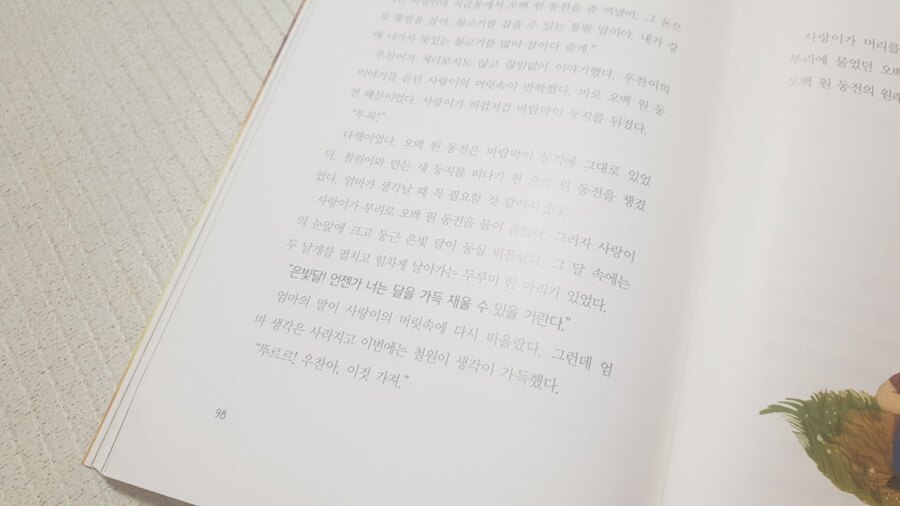 저금통에서 오백 원 동전을 좀 꺼냈어. 그 돈으
로 통발을 샀어. 물고기를 잡을 수 있는 통발 말이야. 내가 강
에 나가서 맛있는 물고기를 많이 잡아다 줄게."
우찬이가 쳐다보지도 않고 끊임없이 이야기했다. 우찬이의
이야기를 듣던 사랑이의 머릿속이 반짝했다. 바로 오백 원 동
전 때문이었다. 사랑이가 허겁지겁 바람막이 둥지를 뒤졌다.
"뚜룩!"
다행이었다. 오백 원 동전은 바람막이 둥지에 그대로 있었
다. 철원이와 만든 새 둥지를 떠나기 전 오백 원 동전을 챙겼
었다. 엄마가 생각날 때 꼭 필요할 것 같아서였다.
사랑이가 부리로 오백 원 동전을 물어 올렸다. 그러자 사랑이
의 눈앞에 크고 둥근 은빛 달이 둥실 떠올랐다. 그 달 속에는
두 날개를 펼치고 힘차게 날아가는 두루미 한 마리가 있었다.
"은빛달! 언젠가 너는 달을 가득 채울 수 있을 거란다."
엄마의 말이 사랑이의 머릿속에 다시 떠올랐다. 그런데 엄
마 생각은 사라지고 이번에는 철원이 생각이 가득했다.
"뚜르르! 우찬아, 이것 가져."
98
사랑이가 머리를
부리에 물었던 오백
오백 원 동전의 원래